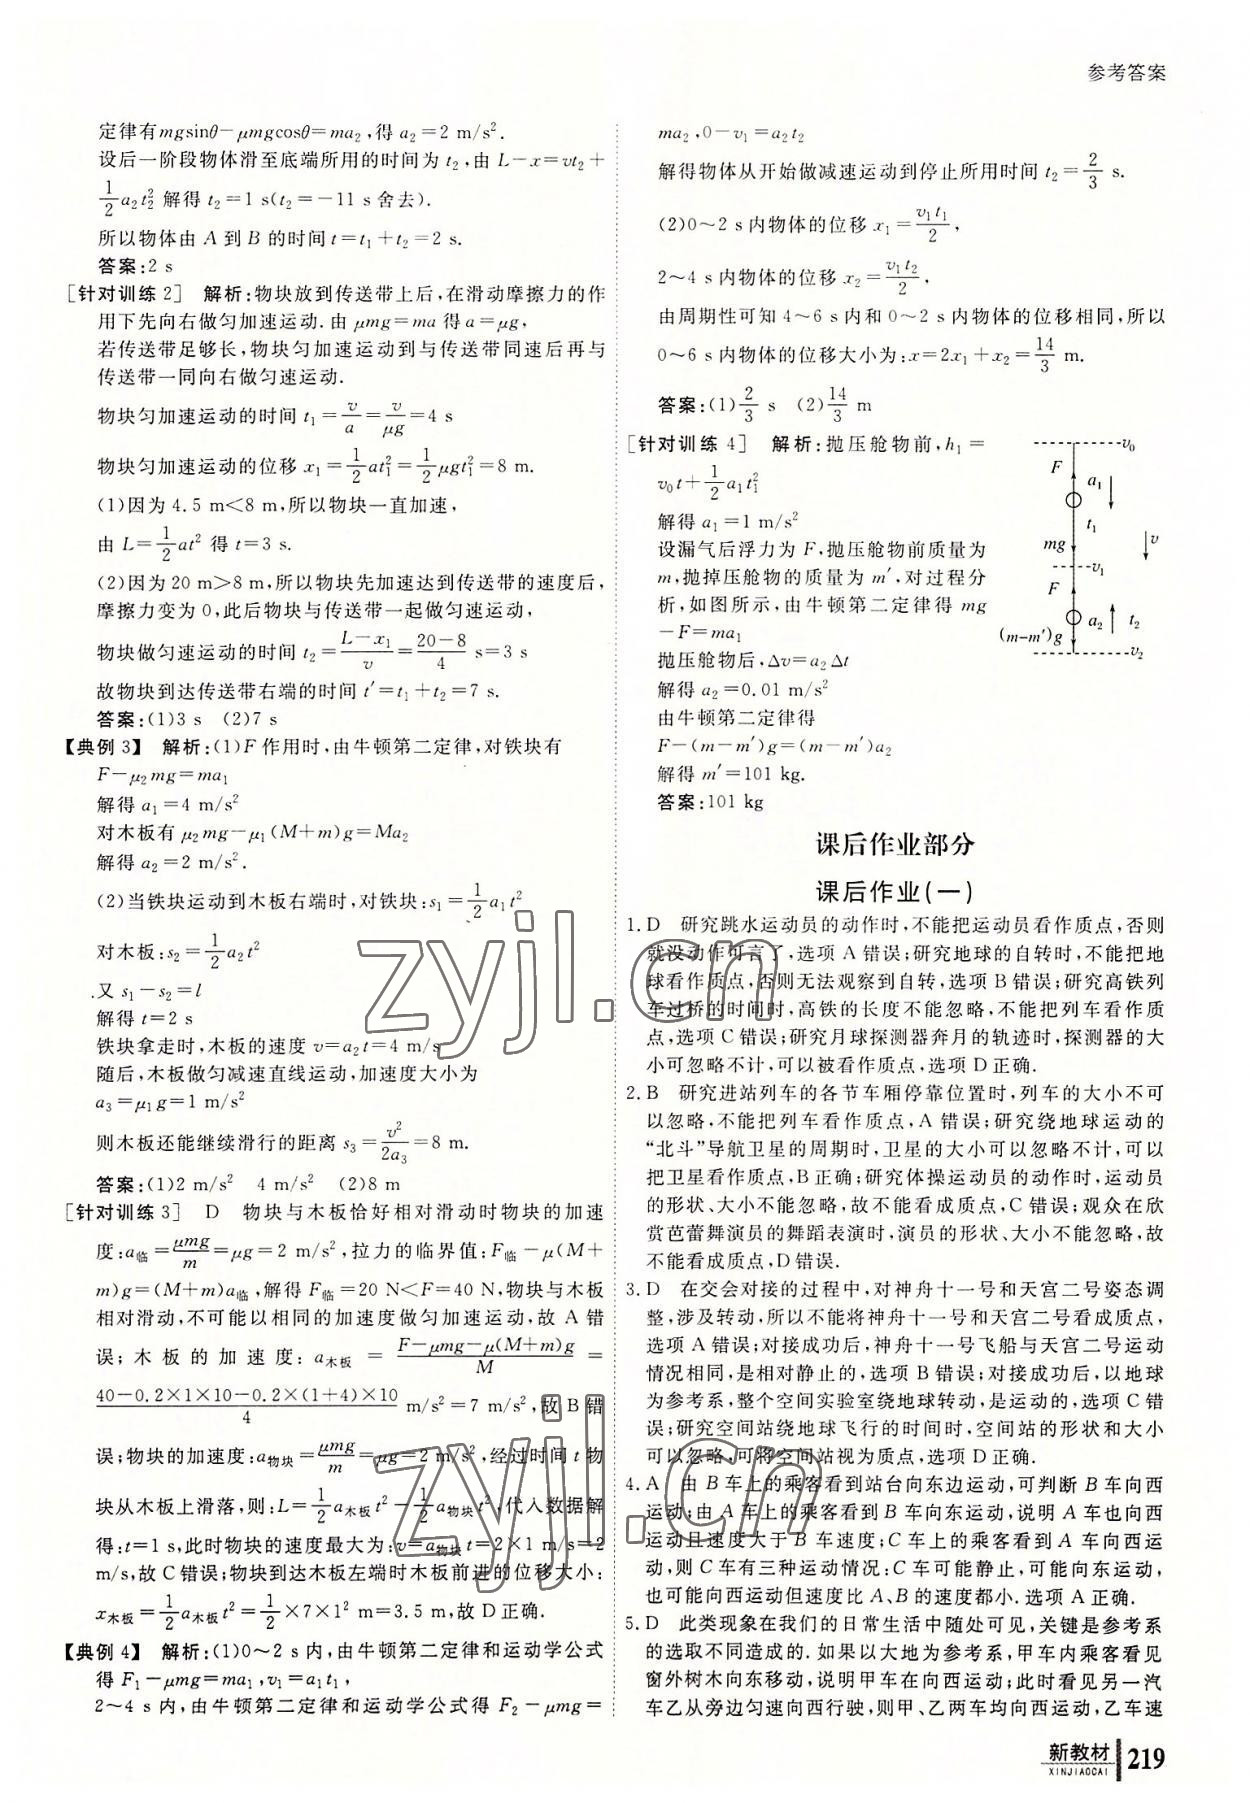 参考答案
定律有mgsinθ-μmgcosθ=ma₂,得 a₂=2 m/s².
设后一阶段物体滑至底端所用的时间为 t₂,由 L-x=vt₂+
1/2 a₂t₂² 解得 t₂=1 s(t₂=-11 s舍去).
所以物体由 A 到 B 的时间 t=t₁+t₂=2 s.
答案:2 s
[针对训练 2] 解析:物块放到传送带上后,在滑动摩擦力的作
用下先向右做匀加速运动.由 μmg=ma 得 a=μg,
若传送带足够长,物块匀加速运动到与传送带同速后再与
传送带一同向右做匀速运动.
物块匀加速运动的时间 t₁=v/a=v/μg=4 s
物块匀加速运动的位移 x₁=1/2 at₁²=1/2 μgt₁²=8 m.
(1)因为 4.5 m<8 m,所以物块一直加速,
由 L=1/2 at² 得 t=3 s.
(2)因为 20 m>8 m,所以物块先加速达到传送带的速度后,
摩擦力变为 0,此后物块与传送带一起做匀速运动,
物块做匀速运动的时间 t₂=(L-x₁)/v=(20-8)/4 s=3 s
故物块到达传送带右端的时间 t′=t₁+t₂=7 s.
答案:(1)3 s (2)7 s
【典例 3】 解析:(1)F 作用时,由牛顿第二定律,对铁块有
F-μ₂mg=ma₁
解得 a₁=4 m/s²
对木板有 μ₂mg-μ₁(M+m)g=Ma₂
解得 a₂=2 m/s².
(2)当铁块运动到木板右端时,对铁块:s₁=1/2 a₁t²
对木板:s₂=1/2 a₂t²
又 s₁-s₂=l
解得 t=2 s
铁块拿走时,木板的速度 v=a₂t=4 m/s
随后,木板做匀减速直线运动,加速度大小为
a₃=μ₁g=1 m/s²
则木板还能继续滑行的距离 s₃=v²/2a₃=8 m.
答案:(1)2 m/s² 4 m/s² (2)8 m
[针对训练 3] D 物块与木板恰好相对滑动时物块的加速
度:a临=μmg/m=μg=2 m/s²,拉力的临界值:F临-μ(M+
m)g=(M+m)a临,解得 F临=20 N<F=40 N,物块与木板
相对滑动,不可能以相同的加速度做匀加速运动,故 A 错
误;木板的加速度:a木板=(F-μmg-μ(M+m)g)/M=
(40-0.2×1×10-0.2×(1+4)×10)/4 m/s²=7 m/s²,故 B 错
误;物块的加速度:a物块=μmg/m=μg=2 m/s²,经过时间 t 物
块从木板上滑落,则:L=1/2 a木板t²-1/2 a物块t²,代入数据解
得:t=1 s,此时物块的速度最大为:v=a物块t=2×1 m/s=2
m/s,故 C 错误;物块到达木板左端时木板前进的位移大小:
x木板=1/2 a木板t²=1/2×7×1² m=3.5 m,故 D 正确.
【典例 4】 解析:(1)0~2 s 内,由牛顿第二定律和运动学公式
得 F₁-μmg=ma₁,v₁=a₁t₁,
2~4 s 内,由牛顿第二定律和运动学公式得 F₂-μmg=
ma₂,0-v₁=a₂t₂
解得物体从开始做减速运动到停止所用时间 t₂=2/3 s.
(2)0~2 s 内物体的位移 x₁=v₁t₁/2,
2~4 s 内物体的位移 x₂=v₁t₂/2,
由周期性可知 4~6 s 内和 0~2 s 内物体的位移相同,所以
0~6 s 内物体的位移大小为:x=2x₁+x₂=14/3 m.
答案:(1)2/3 s (2)14/3 m
[针对训练 4] 解析:抛压舱物前,h₁=
v₀t+1/2 a₁t₁²
解得 a₁=1 m/s²
设漏气后浮力为 F,抛压舱物前质量为
m,抛掉压舱物的质量为 m′,对过程分
析,如图所示,由牛顿第二定律得 mg
-F=ma₁
抛压舱物后,Δv=a₂Δt
解得 a₂=0.01 m/s²
由牛顿第二定律得
F-(m-m′)g=(m-m′)a₂
解得 m′=101 kg.
答案:101 kg
v₀
F
a₁
t₁
mg
v
v₁
F
a₂
t₂
(m-m′)g
v₂
课后作业部分
课后作业(一)
1. D 研究跳水运动员的动作时,不能把运动员看作质点,否则
就没动作可言了,选项 A 错误;研究地球的自转时,不能把地
球看作质点,否则无法观察到自转,选项 B 错误;研究高铁列
车过桥的时间时,高铁的长度不能忽略,不能把列车看作质
点,选项 C 错误;研究月球探测器奔月的轨迹时,探测器的大
小可忽略不计,可以被看作质点,选项 D 正确.
2. B 研究进站列车的各节车厢停靠位置时,列车的大小不可
以忽略,不能把列车看作质点,A 错误;研究绕地球运动的
“北斗”导航卫星的周期时,卫星的大小可以忽略不计,可以
把卫星看作质点,B 正确;研究体操运动员的动作时,运动员
的形状、大小不能忽略,故不能看成质点,C 错误;观众在欣
赏芭蕾舞演员的舞蹈表演时,演员的形状、大小不能忽略,故
不能看成质点,D 错误.
3. D 在交会对接的过程中,对神舟十一号和天宫二号姿态调
整,涉及转动,所以不能将神舟十一号和天宫二号看成质点,
选项 A 错误;对接成功后,神舟十一号飞船与天宫二号运动
情况相同,是相对静止的,选项 B 错误;对接成功后,以地球
为参考系,整个空间实验室绕地球转动,是运动的,选项 C 错
误;研究空间站绕地球飞行的时间时,空间站的形状和大小
可以忽略,可将空间站视为质点,选项 D 正确.
4. A 由 B 车上的乘客看到站台向东边运动,可判断 B 车向西
运动;由 A 车上的乘客看到 B 车向东运动,说明 A 车也向西
运动且速度大于 B 车速度;C 车上的乘客看到 A、B 车都向东运
动,则 C 车有三种运动情况:C 车可能静止,可能向东运动,
也可能向西运动但速度比 A、B 的速度都小.选项 A 正确.
5. D 此类现象在我们的日常生活中随处可见,关键是参考系
的选取不同造成的.如果以大地为参考系,甲车内乘客看见
窗外树木向东移动,说明甲车在向西运动;此时看见另一汽
车乙从旁边匀速向西行驶,则甲、乙两车均向西运动,乙车速
新教材
XINJIAOCAI
219
zyjl.cn
zyjl.cn